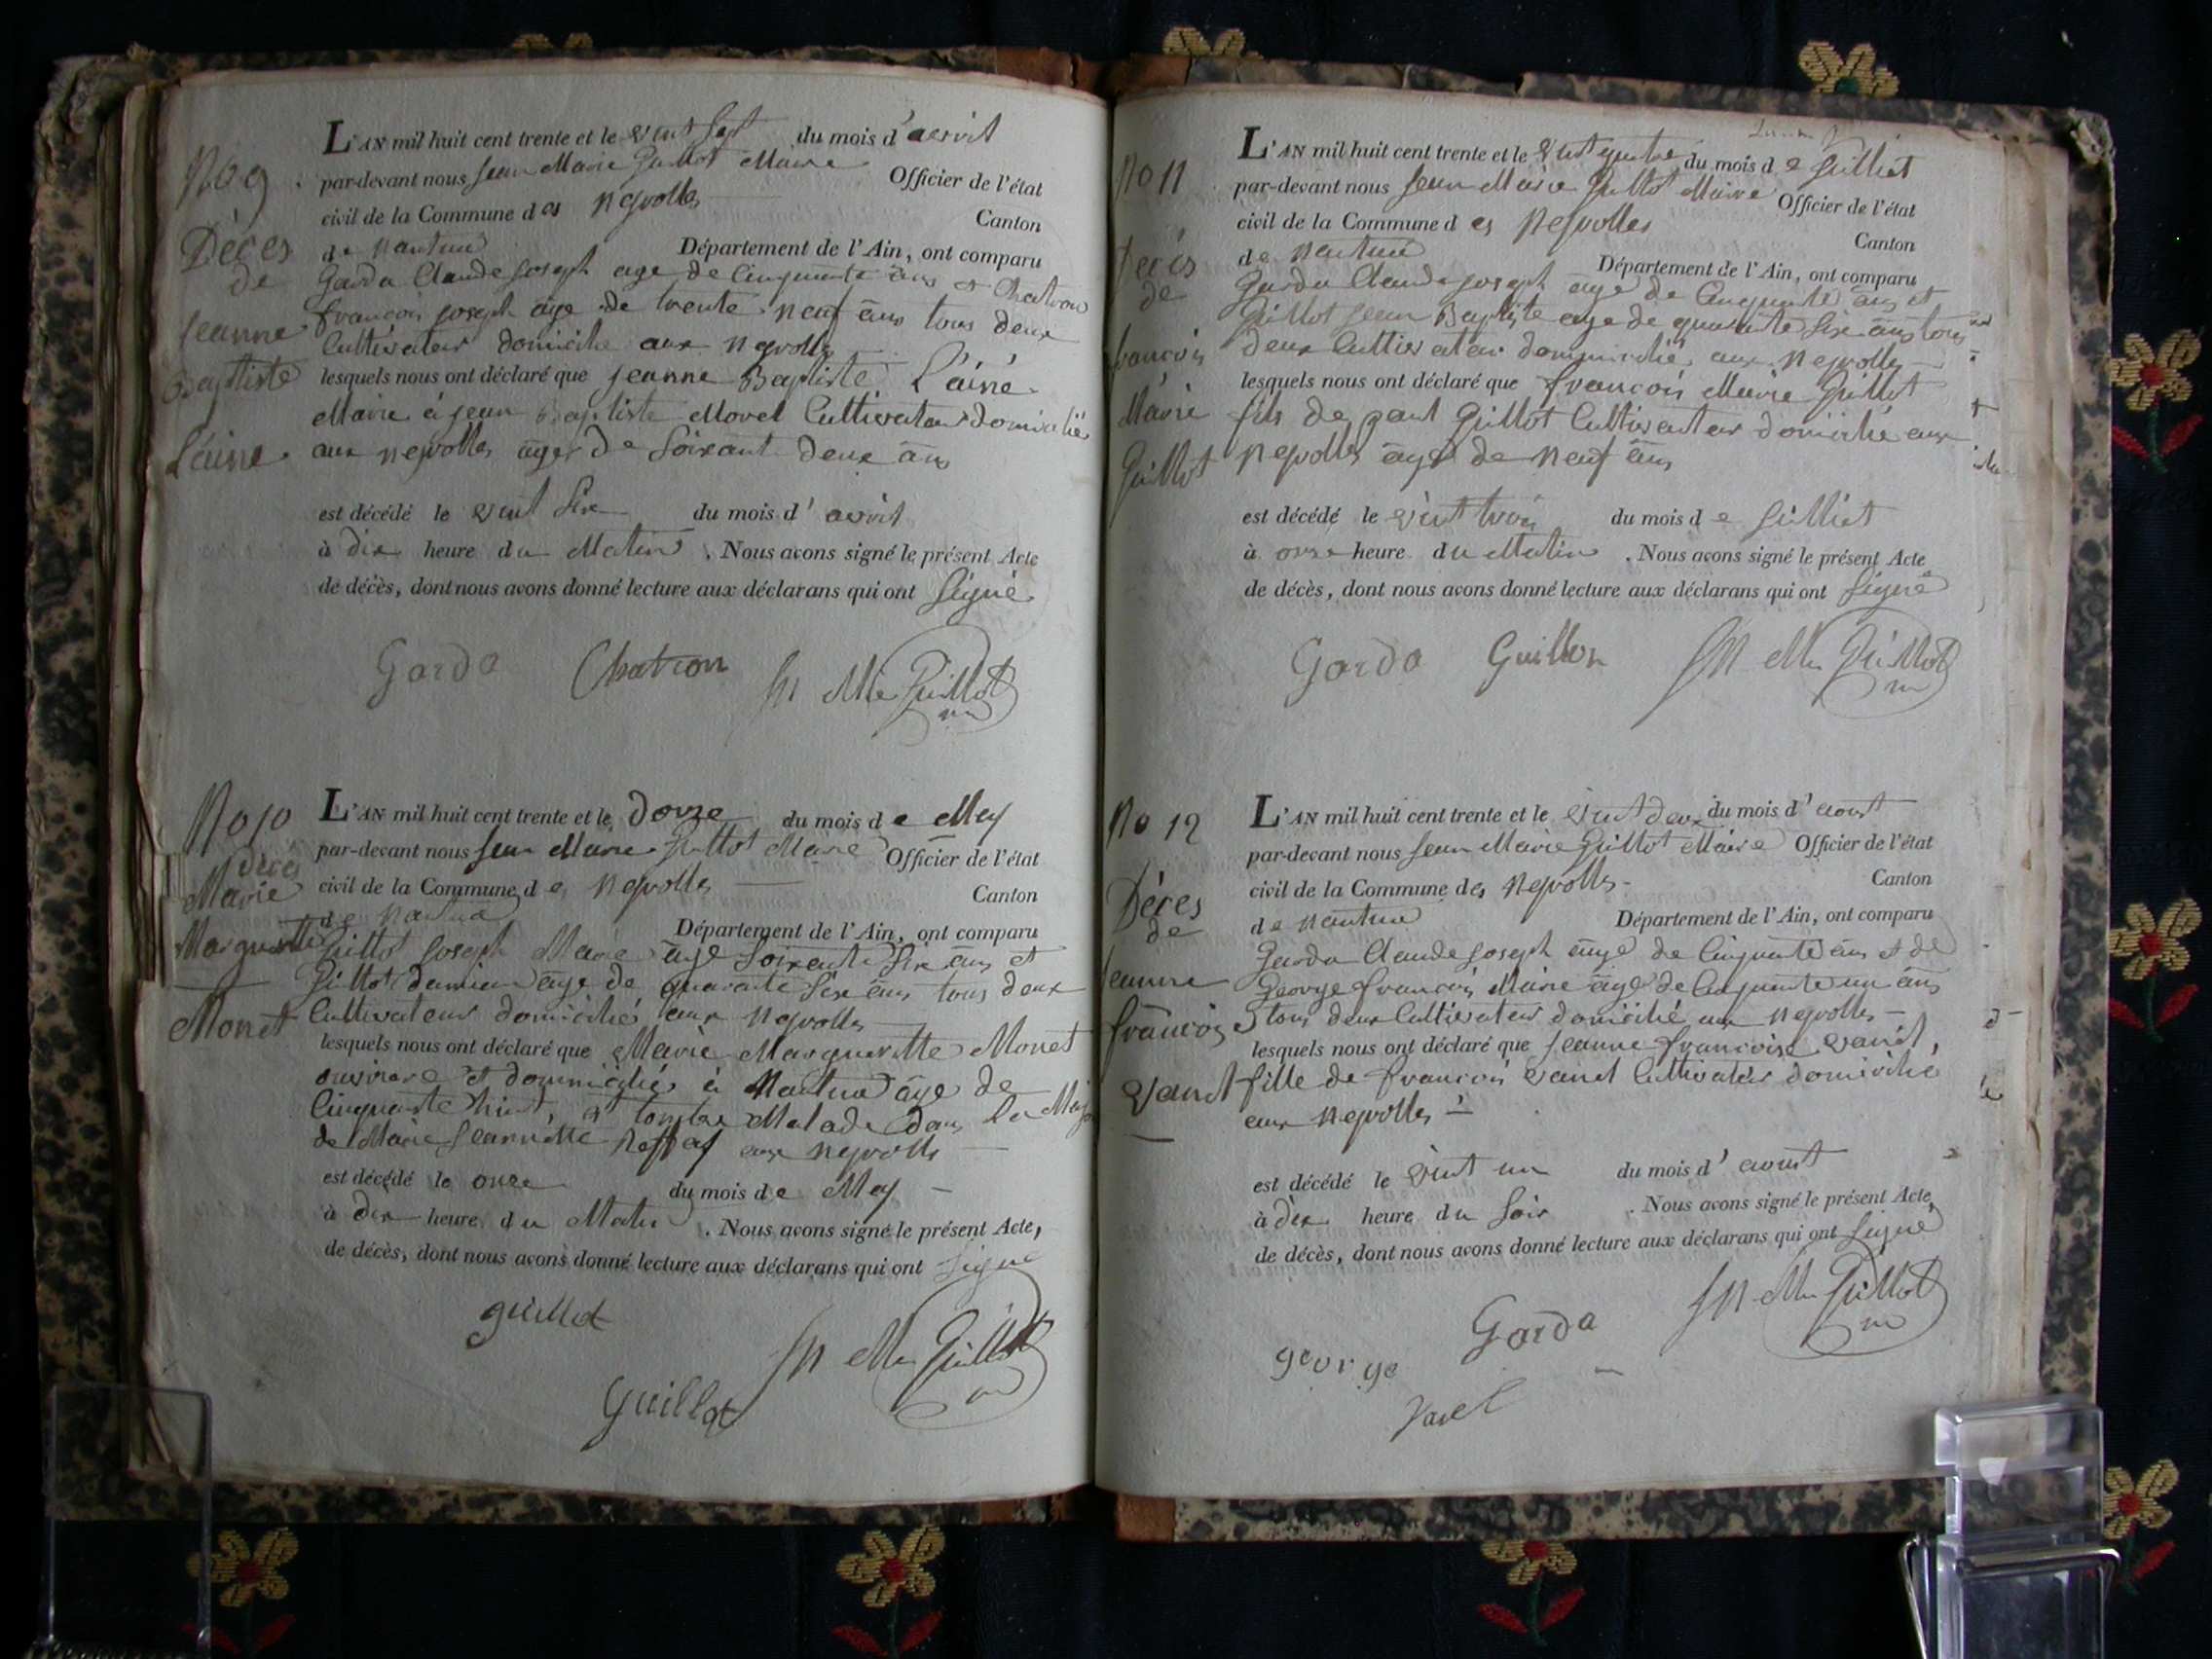 No 9.
Déces
de
jeanne
Baptiste
L'ainé.
L'AN mil huit cent trente et le vint sept du mois d'avril
par-devant nous jean Marie Guillot Maire Officier de l'état
civil de la Commune des neyrolles Canton
de nantua Département de l'Ain, ont comparu
Garda Claude joseph age de Cinquante ans et Chatron
francois joseph âge de trente neuf âns tous deux
Cultivateur domicilie aux neyrolles
lesquels nous ont déclaré que jeanne Baptiste L'ainé
Marie à jean Baptiste Morel Cultivateur domicilié
aux neyrolles âger de Soixant deux âns
est décédé le vint Six du mois d'avril
à dix heure du Matin. Nous avons signé le présent Acte
de décès, dont nous avons donné lecture aux déclarans qui ont Signé
Garda Chatron Jn Mie Guillot
No 10
décés
Marie
Marguerite
Monet
L'AN mil huit cent trente et le douze du mois de Mey
par-devant nous jean Marie Guillot Maire Officier de l'état
civil de la Commune des neyrolles Canton
de nantua Département de l'Ain, ont comparu
Guillot joseph Marie âge Soixante Six âns et
Guillot damian âge de quarante Six âns tous deux
Cultivateur domicilié aux neyrolles
lesquels nous ont déclaré que Marie Marguerite Monet
et domicilié à Nantua âge de
Cinquante huit, et tombée Malade dans la
de Marie jeannette aux neyrolles
est décédé le onze du mois de Mey
à dix heure du Matin. Nous avons signé le présent Acte,
de décès, dont nous avons donné lecture aux déclarans qui ont Signé
guillot
Guillot Jn Mie Guillot
No 11
Décés
de
francois
Marie
Guillot
L'AN mil huit cent trente et le vint quatre du mois de Juilliet
par-devant nous jean Marie Guillot Maire Officier de l'état
civil de la Commune des Neyrolles Canton
de nantua Département de l'Ain, ont comparu
Garda Claude joseph âge de Cinquante âns et
Guillot jean Baptiste âge de quarante Six âns tous
deux Cultivateur domicilié aux neyrolles
lesquels nous ont déclaré que francois Marie Guillot
fils de paul Guillot Cultivateur domicilié aux
neyrolles âgé de neuf âns
est décédé le vint trois du mois de Juilliet
à onze heure du Matin. Nous avons signé le présent Acte
de décès, dont nous avons donné lecture aux déclarans qui ont Signé
Garda Guillon Jn Mie Guillot
No 12
Déces
de
jeanne
francoise
Vanel
L'AN mil huit cent trente et le vint deux du mois d'aoust
par-devant nous jean Marie Guillot Maire Officier de l'état
civil de la Commune des neyrolles Canton
de nantua Département de l'Ain, ont comparu
Garda Claude joseph âge de Cinquante âns et de
George francois Marie âgé de Cinquante un âns
tous deux Cultivateur domicilié aux neyrolles
lesquels nous ont déclaré que jeanne francoise Vanel,
fille de francois Vanel Cultivateur domicilié
aux neyrolles
est décédé le vint un du mois d'aoust
à dix heure du Soir. Nous avons signé le présent Acte
de décès, dont nous avons donné lecture aux déclarans qui ont Signé
george Garda Jn Mie Guillot